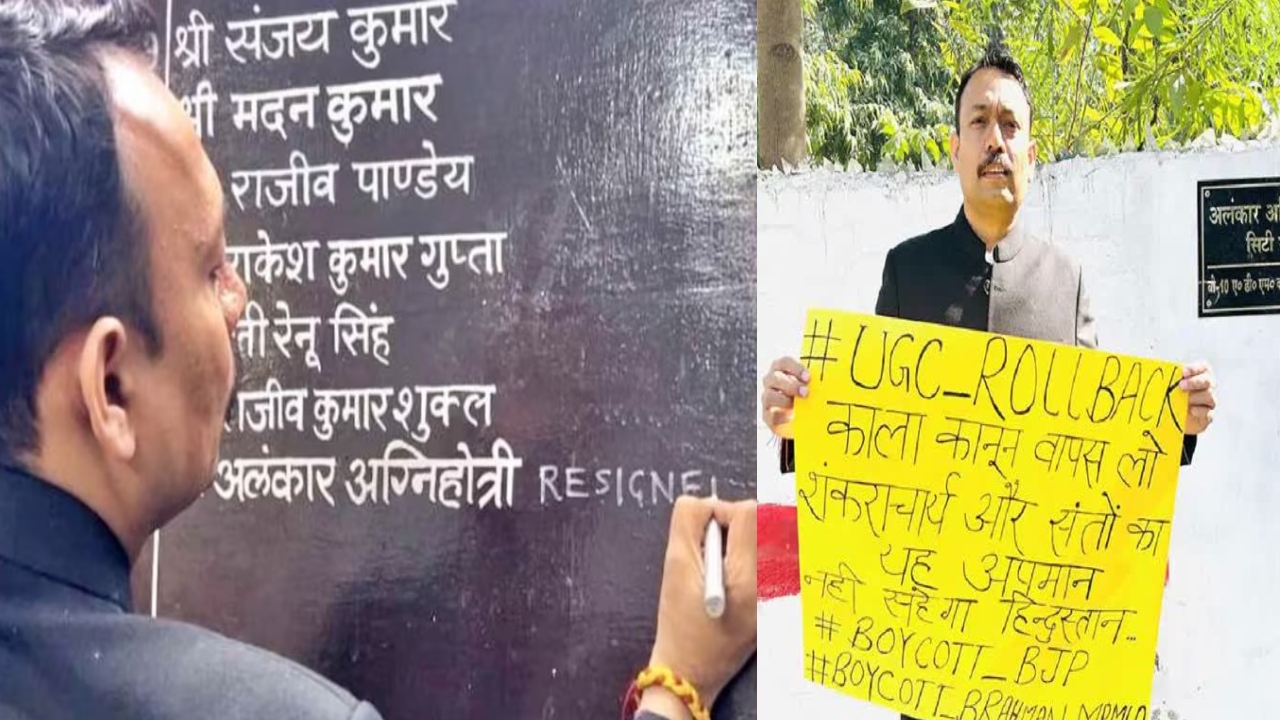 श्री संजय कुमार
श्री मदन कुमार
राजीव पाण्डेय
राकेश कुमार गुप्ता
रेनू सिंह
राजीव कुमार शुक्ल
अलंकार अग्निहोत्री RESIGNE
#UGC_ROLLBACK
काला कानून वापस लो
शंकराचार्य और संतों का
यह अपमान
नही सहेगा हिन्दुस्तान...
#BOYCOTT_BJP
#BOYCOTT_BRAHMAN
अलंकार
सिटी